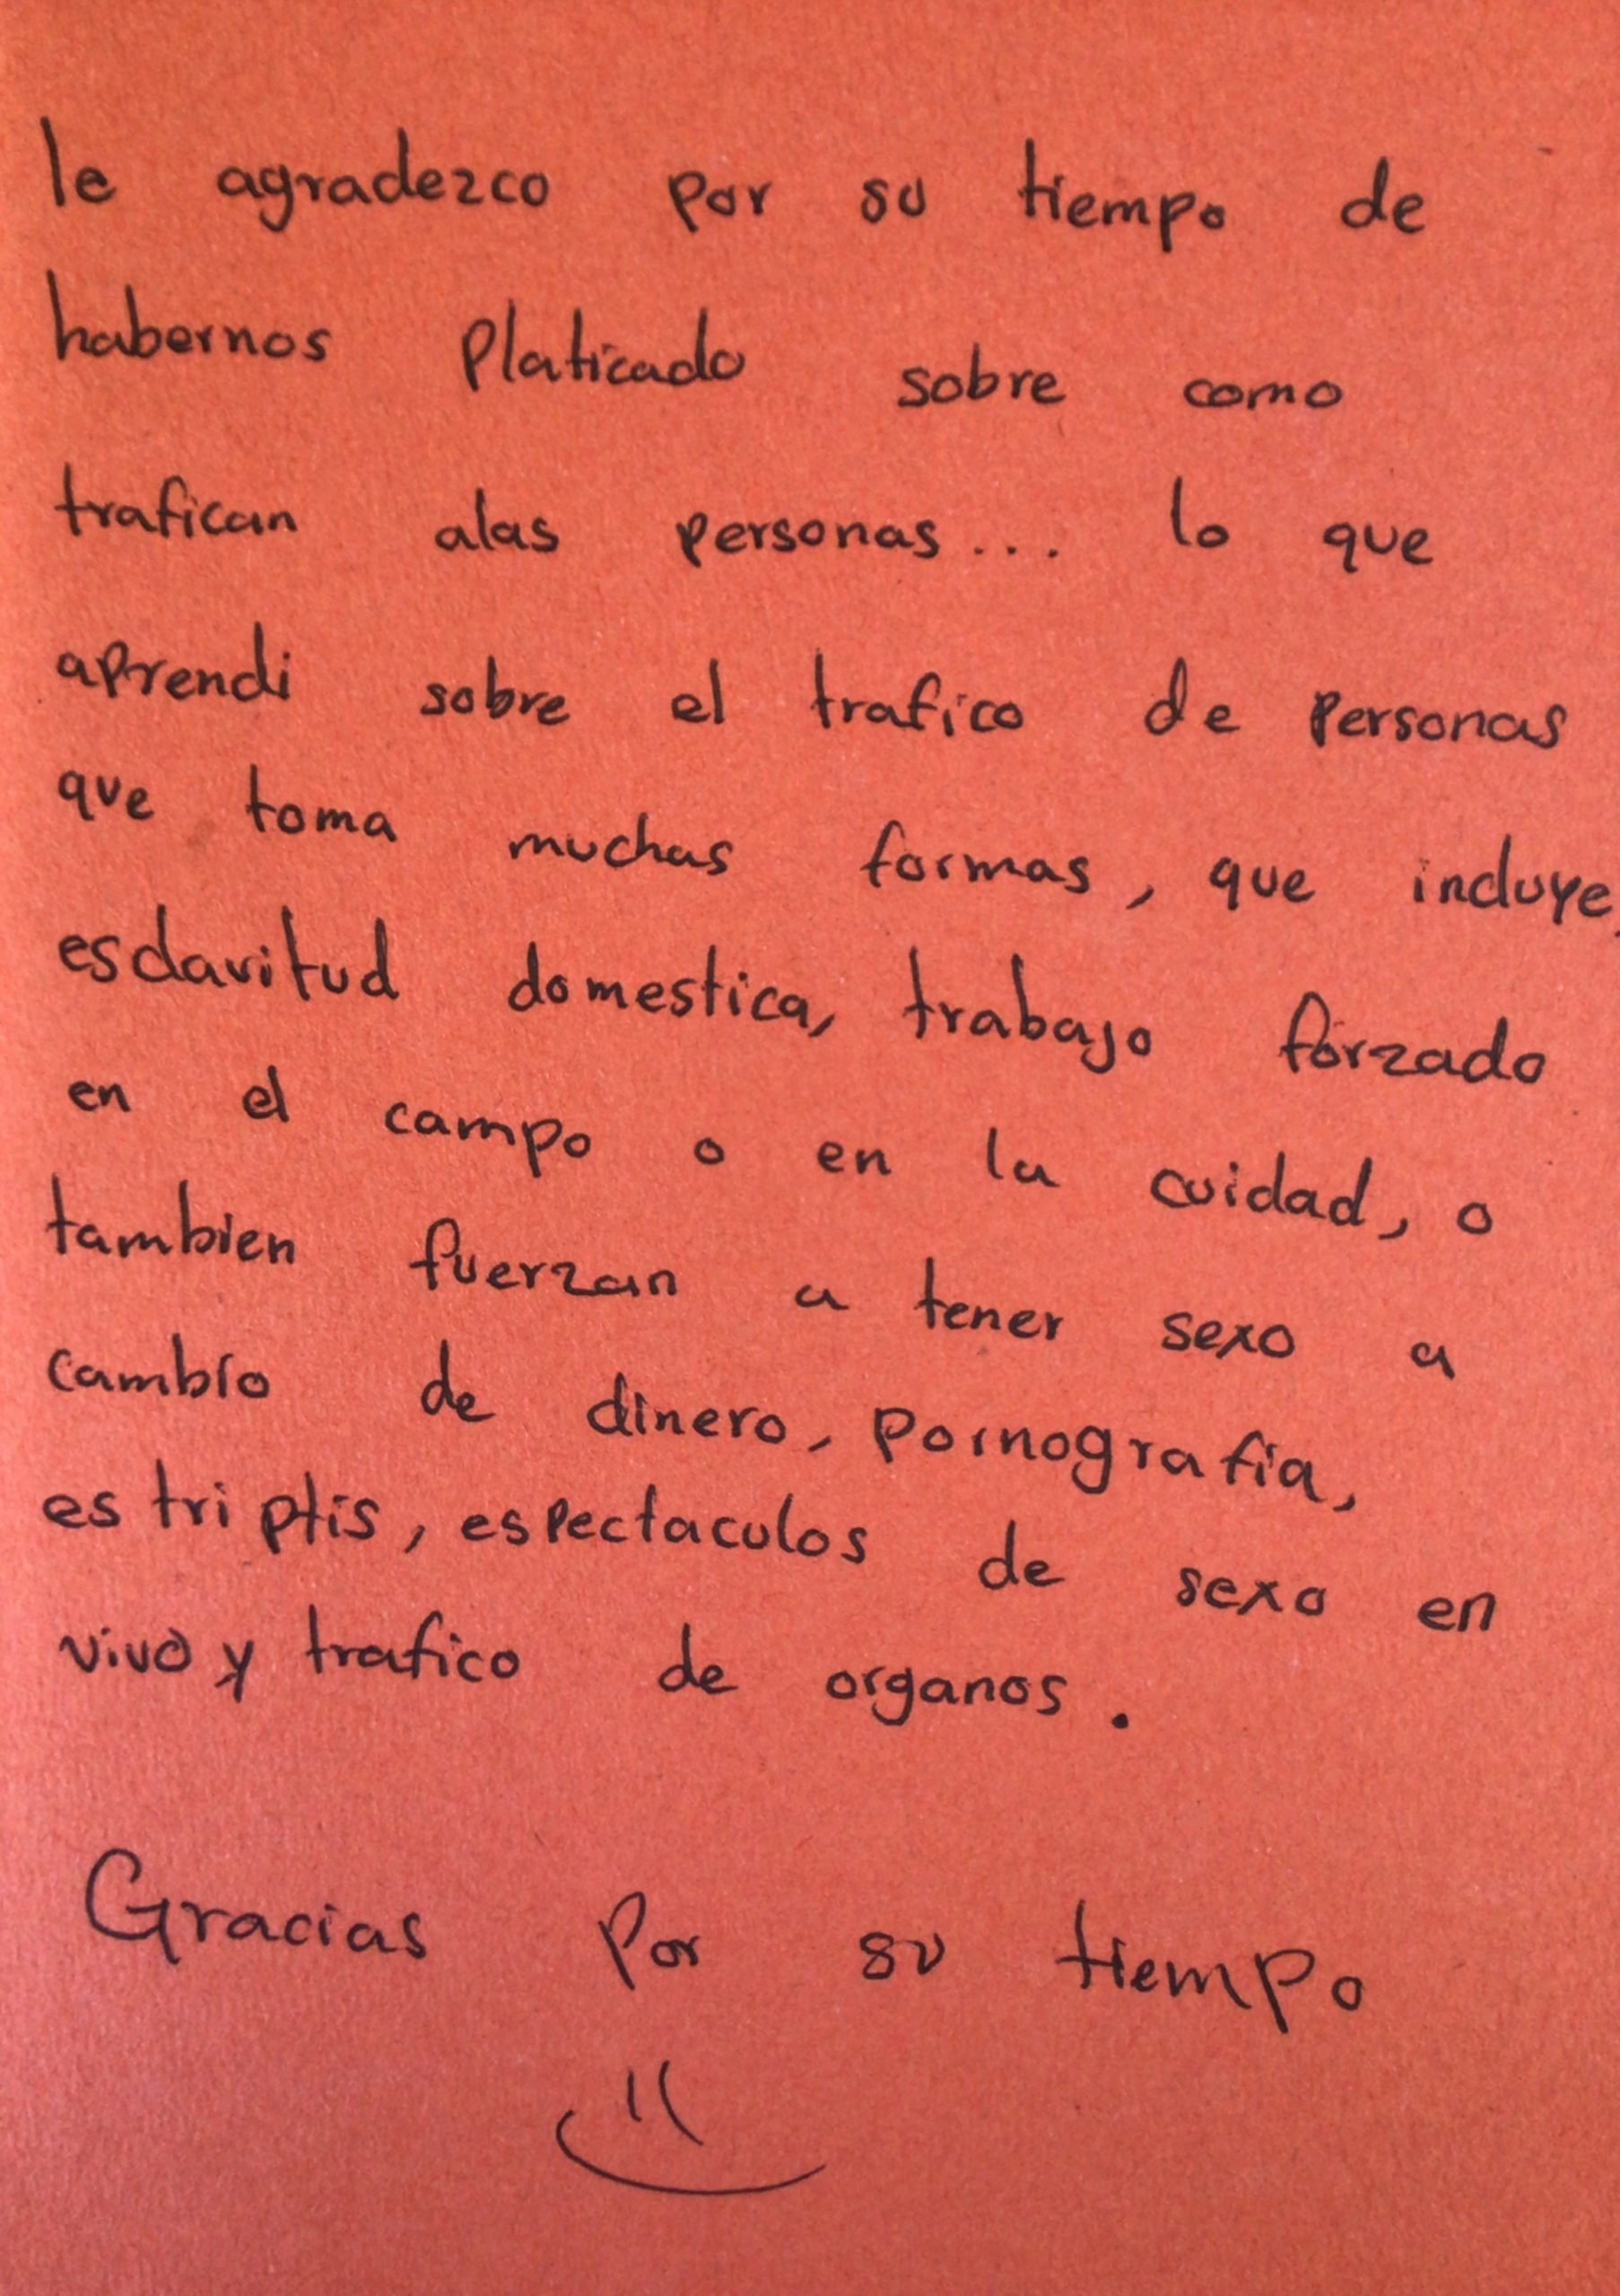 le agradezco por su tiempo de
habernos Platicado sobre como
trafican alas personas... lo que
aprendi sobre el trafico de personas
que toma muchas formas, que incluye,
esclavitud domestica, trabajo forzado
en el campo o en la cuidad, o
tambien fuerzan a tener sexo a
cambio de dinero, Pornografia,
estriptis, espectaculos de sexo en
vivo y trafico de organos.
Gracias Por su tiempo